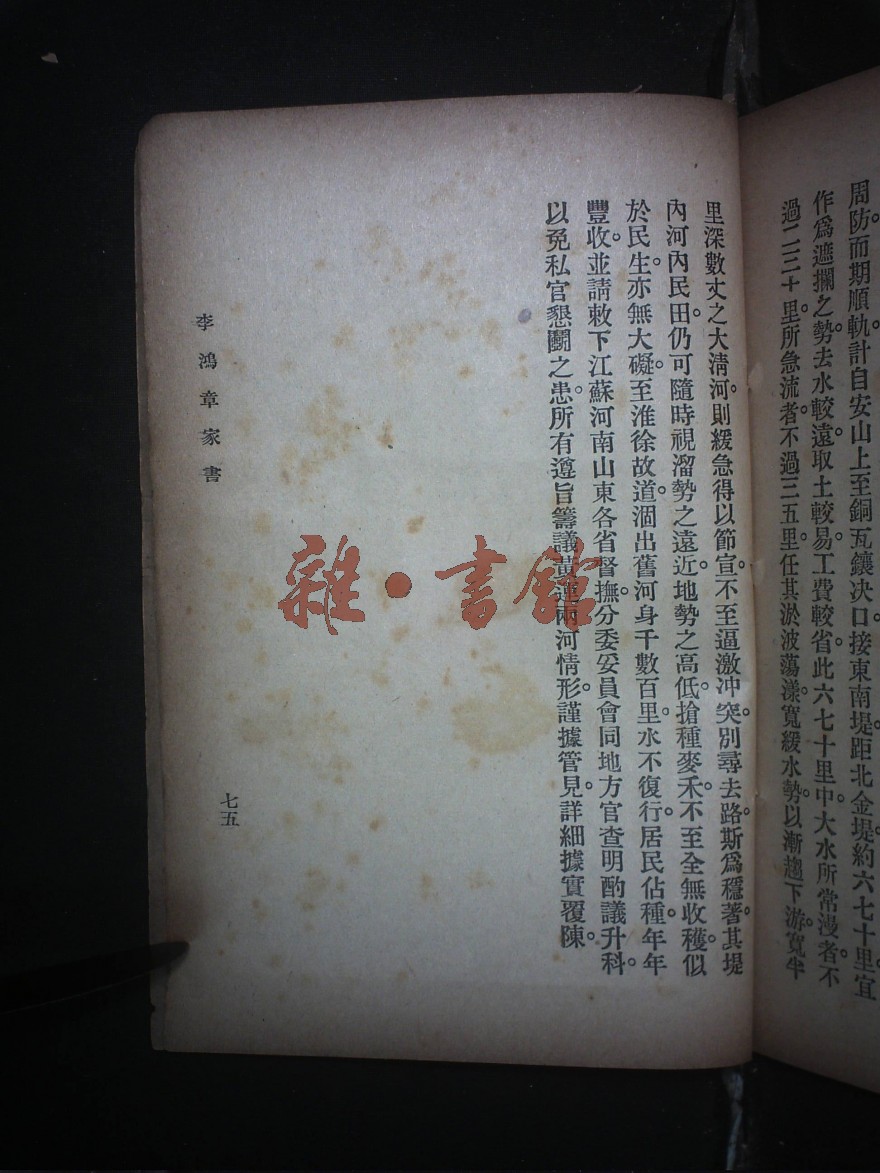 周防。而期順軌。計自安山上至銅瓦鑲決口。接東南堤。距北金堤約六七十里。宜
作爲遮攔之勢。去水較遠。取土較易。工費較省。此六七十里中。大水所常漫者。不
過二三十里。所急流者。不過三五里。任其淤波蕩漾。寬緩水勢。以漸趨下游。寬半
里深數丈之大清河。則緩急得以節宣。不至逼激冲突。別尋去路。斯爲穩著。其堤
內河內民田。仍可隨時視溜勢之遠近。地勢之高低。搶種麥禾。不至全無收穫。似
於民生亦無大礙。至淮徐故道。涸出舊河身千數百里。水不復行。居民佔種。年年
豐收。並請敕下江蘇河南山東各省督撫。分委妥員。會同地方官查明酌議升科。
以免私官懇鬭之患。所有遵旨籌議黃運兩河情形。謹據管見。詳細據實覆陳。
李鴻章家書
七五
雜·書館